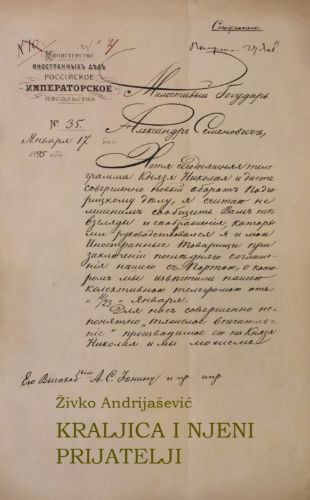 Секретно
МИНИСТЕРСТВО
ИНОСТРАННЫХЪ ДѢЛЪ
РОССІЙСКОЕ
ИМПЕРАТОРСКОЕ
ПОСОЛЬСТВО
Милостивый Государь
№ 35.
Января 17 дня
Александръ Семеновичъ,
Хотя сегодняшняя теле-
грамма Князя Николая и даетъ
совершенно новый оборотъ Подго-
рицкому дѣлу, я считаю не
лишнимъ сообщить Вамъ тѣ
взгляды и соображенія, которы-
ми руководствовался я и мои
Иностранные Товарищи при
заключеніи послѣдняго соглаше-
нія нашего съ Портою, о кото-
ромъ мы извѣстили нашею
коллективною телеграмою отъ
11/23 Января.
Для насъ совершенно не-
понятно "тяжелое впечатлѣ-
ніе" производимое ею на Князя
Николая и мы можемъ
Его Высокоб
А. С. Іонину и пр. пр.
Živko Andrijašević
KRALJICA I NJENI
PRIJATELJI